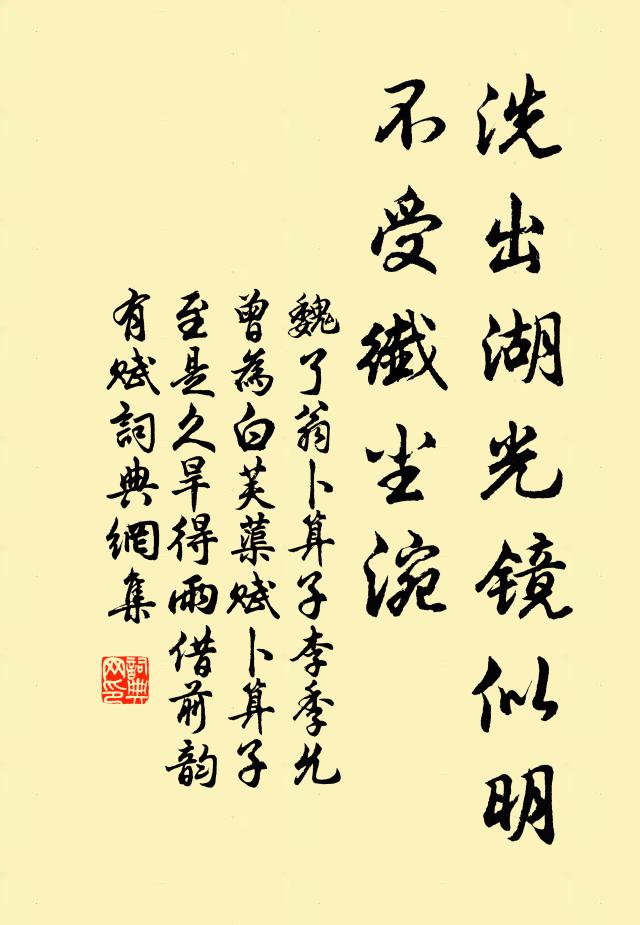 洗出湖光镜似明
不受纖尘涴
魏了翁卜算子李季允
曾為白芙蕖赋卜算子
至是久旱得雨借前韵
有赋詞典網集
詞典
网印